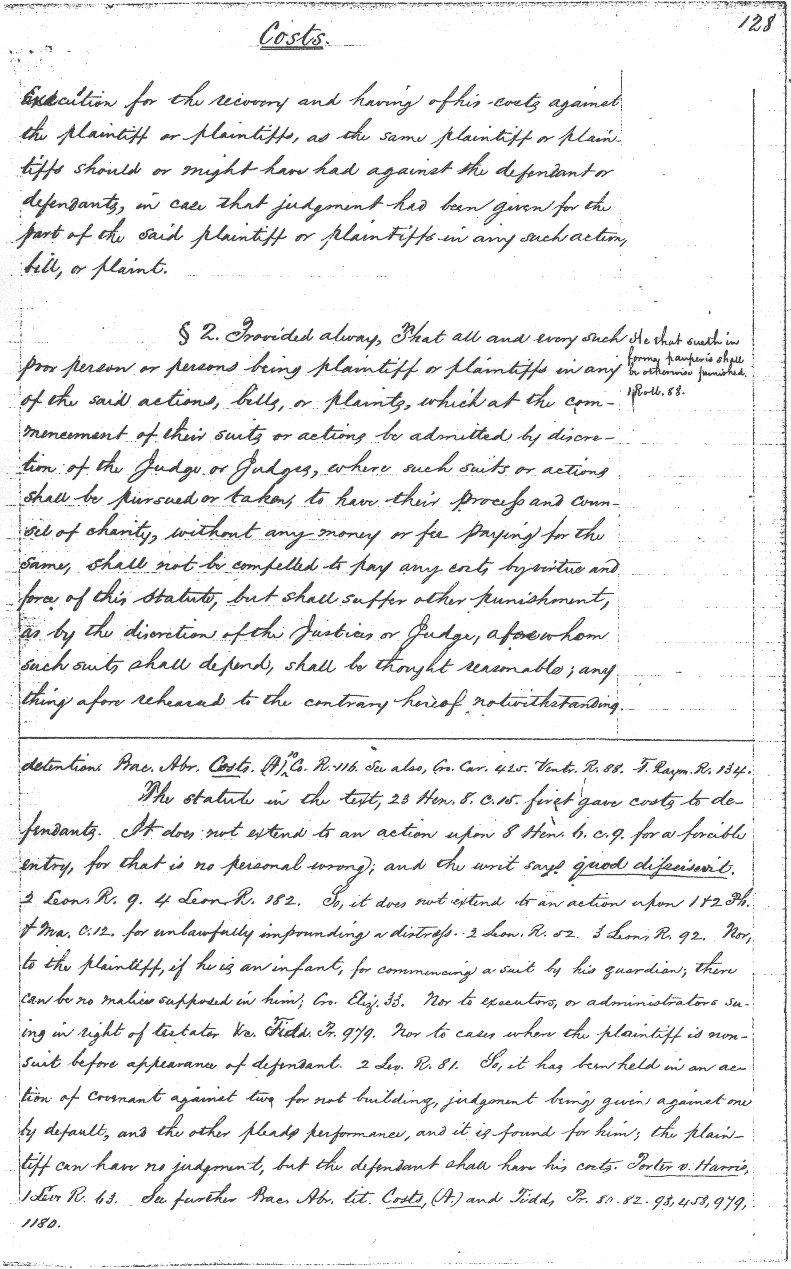 128
Costs.
Execution for the recovery and having of his costs against
the plaintiff or plaintiffs, as the same plaintiff or plain-
tiffs should or might have had against the defendant or
defendants, in case that judgment had been given for the
part of the said plaintiff or plaintiffs in any such action,
bill, or plaint.
§ 2. Provided alway, That all and every such
poor person or persons being plaintiff or plaintiffs in any
of the said actions, bills, or plaints, which at the com-
mencement of their suits or actions be admitted by discre-
tion of the Judge or Judges, where such suits or actions
shall be pursued or taken, to have their process and coun-
sel of charity, without any money or fee paying for the
same, shall not be compelled to pay any costs by virtue and
force of this statute, but shall suffer other punishment,
as by the discretion of the Justices or Judge, afore whom
such suits shall depend, shall be thought reasonable; any
thing afore rehearsed to the contrary hereof notwithstanding
He that sueth in
forma pauperis shall
be otherwise punished.
1 Roll. 88.
detention. Bac. Abr. Costs. (A) 10 Co. R. 116. See also, Cro. Car. 425. Ventr. R. 88. T. Raym. R. 134.
The statute in the text, 23 Hen. 8. c. 15. first gave costs to de-
fendants. It does not extend to an action upon 8 Hen. 6. c. 9. for a forcible
entry, for that is no personal wrong; and the writ says quod disseisivit.
2 Leon. R. 9. 4 Leon. R. 182. So, it does not extend to an action upon 1 & 2 Ph.
& Ma. c. 12. for unlawfully impounding a distress. 2 Leon. R. 52. 3 Leon. R. 92. Nor,
to the plaintiff, if he is an infant, for commencing a suit by his guardian; there
can be no malice supposed in him; Cro. Eliz. 33. Nor to executors, or administrators su-
ing in right of testator &c. Tidd. Pr. 979. Nor to cases where the plaintiff is non-
suit before appearance of defendant. 2 Lev. R. 81. So, it has been held in an ac-
tion of covenant against two for not building, judgment being given against one
by default, and the other pleads performance, and it is found for him; the plain-
tiff can have no judgment, but the defendant shall have his costs. Porter v. Harris,
1 Lev. R. 63. See further Bac. Abr. tit. Costs, (A.) and Tidd, Pr. 80. 82. 98, 458, 979,
1180.